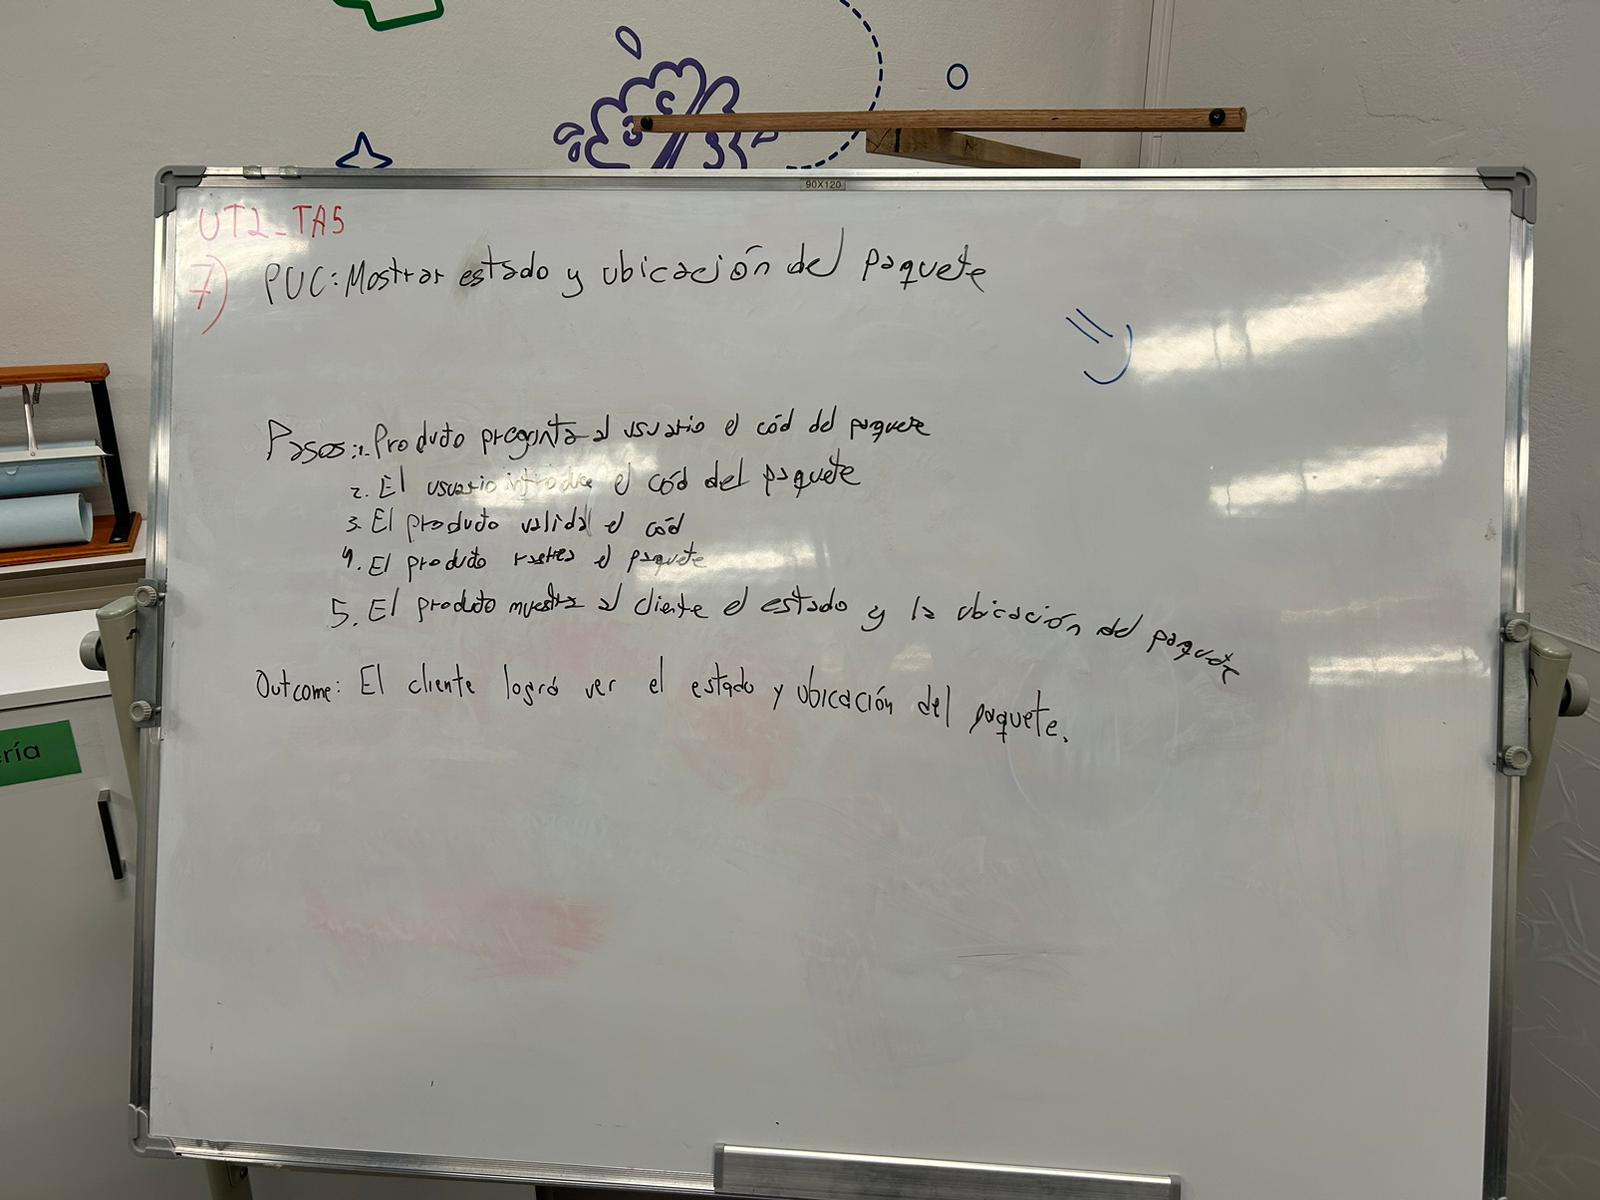 90X120
UT2_TA5
7) PUC: Mostrar estado y ubicación del paquete
Pasos: 1. Producto pregunta al usuario el cód del paquete
2. El usuario introduce el cód del paquete
3. El producto valida el cód
4. El producto rastrea el paquete
5. El producto muestra al cliente el estado y la ubicación del paquete
Outcome: El cliente logró ver el estado y ubicación del paquete.
ría